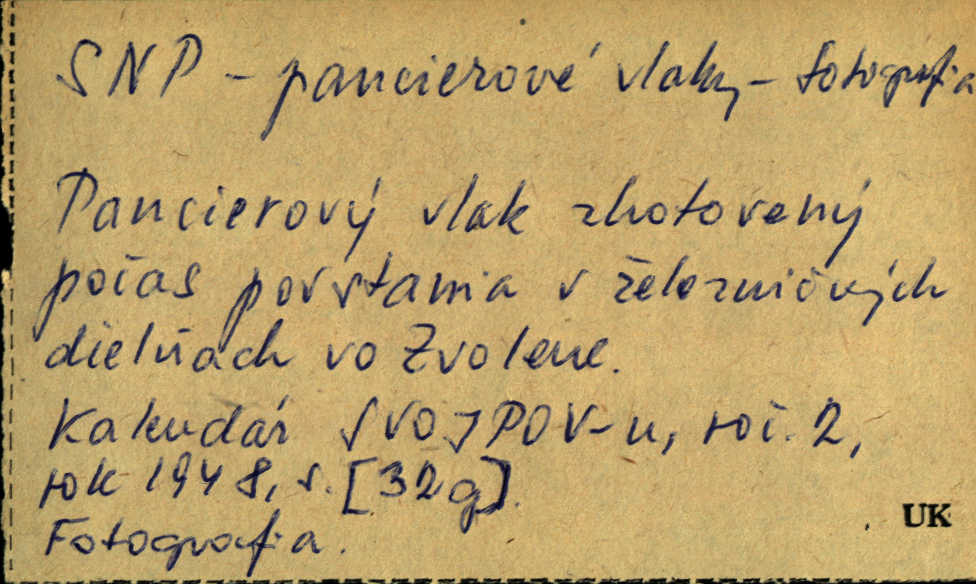 SNP - pancierové vlaky - fotografia
Pancierový vlak zhotovený
počas povstania v železničných
dielňach vo Zvolene.
Kalendár SVOJPOV-u, roč. 2,
rok 1948, s. [32g].
Fotografia.
UK